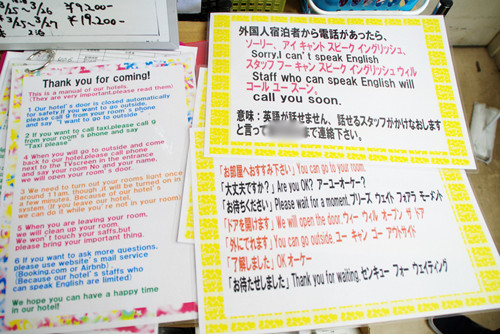 3/25-3/26 ¥9,200-
¥19,200-
Thank you for coming!
This is a manual of our hotels.
(They are very important,please read them)
1 Our hotel's door is closed automatically
for safety if you want to go outside,
please call 9 from your room's phone
and say "I want to go to outside"
2 If you want to call taxi,please call 9
from your room's phone and say
"Taxi please"
4 When you will go to outside and come
back to our hotel,please call phone
next to the TVscreen in the entrance
and say your room No and your name,
we will open your room's door.
3 We need to turn out your rooms light once
around 11am. though it will be turned on in
a few minutes. Because of our hotel's
system. (if you leave your room,
we can do it while you're not in your room)
5 When you are leaving your room,
we will clean up your room.
We won't touch your saffs,but
please bring your important thing.
6 If you want to ask more questions,
please use website's mail service
(Booking.com or Airbnb)
(Because our hotel's staffs who
can speak English are limited)
We hope you can have a happy time
in our hotel!
外国人宿泊者から電話があったら、
ソーリー、アイ キャント スピーク イングリッシュ、
Sorry.I can't speak English
スタッフ フー キャン スピーク イングリッシュ ウィル
Staff who can speak English will
コール ユー スーン。
call you soon.
意味：英語が話せません、話せるスタッフがかけなおします
と言って まで連絡下さい。
「お部屋へおすすみ下さい」You can go to your room.
「大丈夫ですか？」Are you OK? アーユーオーケー？
「お待ちください」Please wait for a moment.プリーズ ウェイト フォアラ モーメント
「ドアを開けます」We will open the door. ウィー ウィル オープン ザ ドア
「外にでれます」You can go outside. ユー キャン ゴー アウトサイド
「了解しました」OK オーケー
「お待たせしました」Thank you for waiting. センキュー フォー ウェイティング